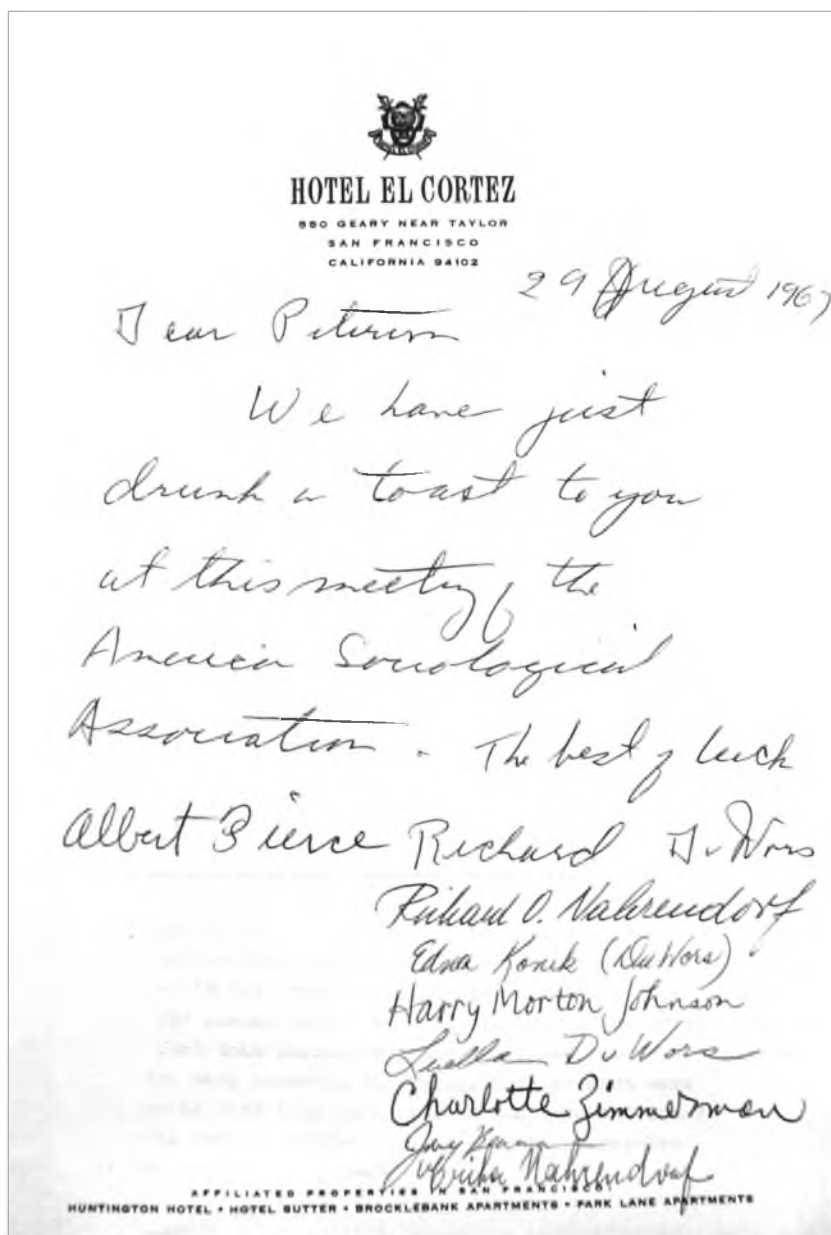 HOTEL EL CORTEZ
550 GEARY NEAR TAYLOR
SAN FRANCISCO
CALIFORNIA 94102
29 August 1967
Dear Pitirim
We have just
drunk a toast to you
at this meeting of the
America Sociological
Association. The best of luck
Albert Pierce Richard Du Wors
Richard O. Nahrendorf
Edna Konik (DuWors)
Harry Morton Johnson
Luella Du Wors
Charlotte Zimmerman
Nahrendorf
AFFILIATED PROPERTIES IN SAN FRANCISCO
HUNTINGTON HOTEL • HOTEL SUTTER • BROCKLEBANK APARTMENTS • PARK LANE APARTMENTS